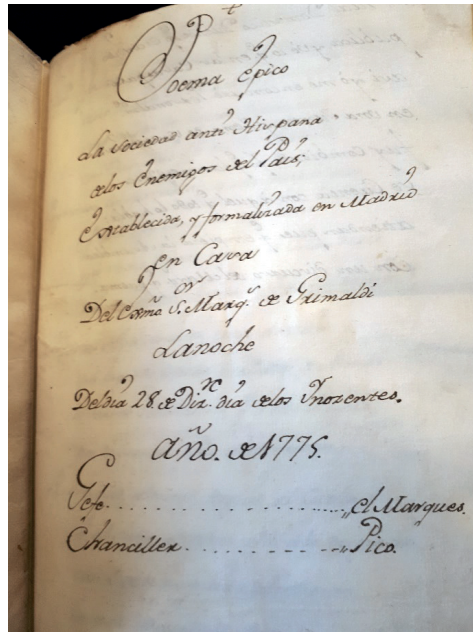 Poema Epico
ala Sociedad anti Hispana
delos Enemigos del Pais,
establecida, y formalizada en Madrid
en Cava
Del Exmo. Sor. Marqs. de Grimaldi
Lanoche
Deldia 28. de Dizre. dia delos Ynozentes.
año. de 1775.
Gefe......................„el Marques.
Chanciller...............„Pico.